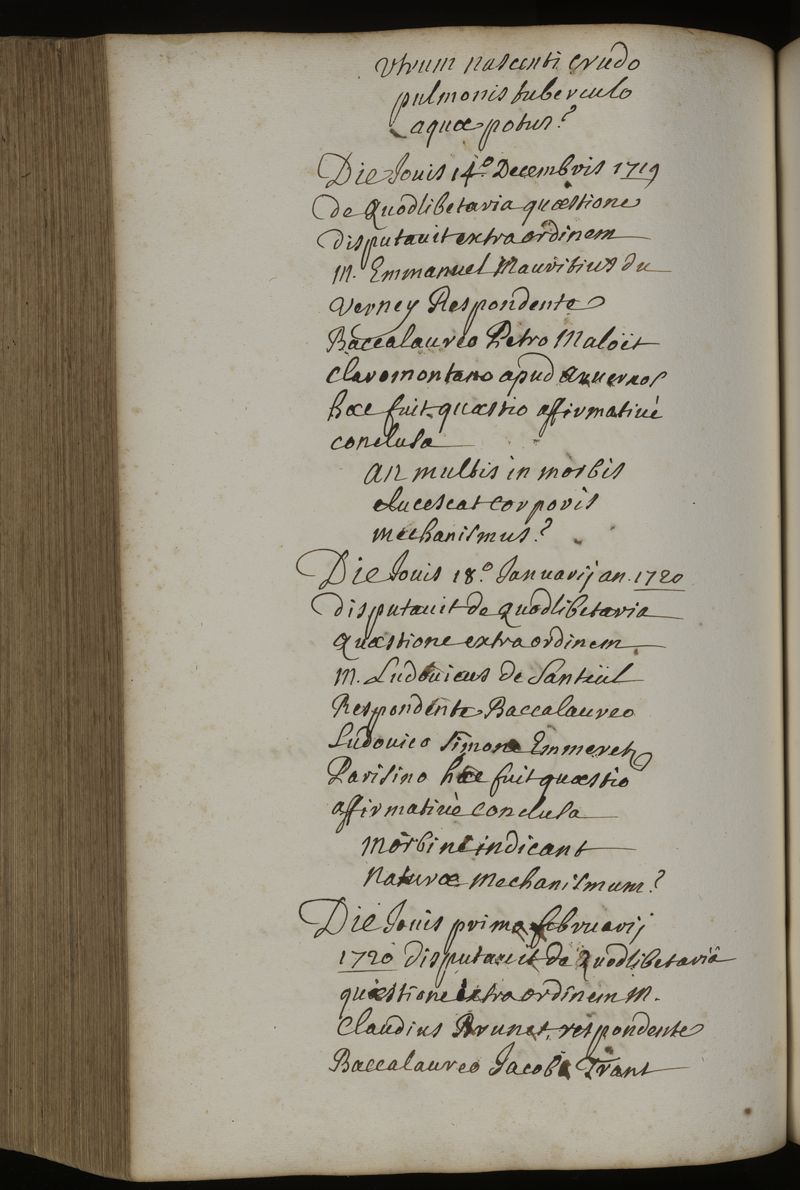 Vtrum nascenti crudo
pulmonis tuberculo
aquæ potus?
Die Jouis 14.º Decembris 1719
de Quodlibetaria quæstione
disputauit extra ordinem
M. Emmanuel Mauritius du
Verney Respondente
Baccalaureo Petro Maloët
Claromontano apud Aruernos
hæc fuit quæstio affirmatiuè
conclusa
An multis in morbis
elucescat corporis
mechanismus?
Die Jouis 18.º Januarij an. 1720
disputauit de quodlibetaria
Quæstione extra ordinem
M. Ludouicus de Santeüil
Respondente Baccalaureo
Ludouico Simone Emmerets
Parisino hæc fuit quæstio
affirmatiuè conclusa
Morbine indicant
Naturæ Mechanismum?
Die Jouis prima februarij
1720 disputauit de Quodlibetariâ
quæstione extra ordinem M.
Claudius Brunet, respondente
Baccalaureo Jacobo Trant